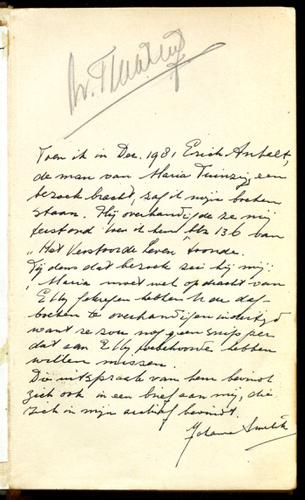 Toen ik in Dec. 1981 Erich Anhalt,
de man van Maria Tuinzing, een
bezoek bracht, zag ik mijn boeken
staan. Hij overhandigde ze mij
toen ik hem blz 136 van
"Het Verstoorde Leven toonde.
Tijdens dat bezoek zei hij mij:
"Maria moet wel opdracht van
Etty gekregen hebben U de dag-
boeken te overhandigen indertijd
want ze zou nog geen snipper
dat aan Etty toebehoorde hebben
willen missen.
Die uitspraak van hem bevindt
zich ook in een brief aan mij, die
zich in mijn archief bevindt.
Johanna Smelik